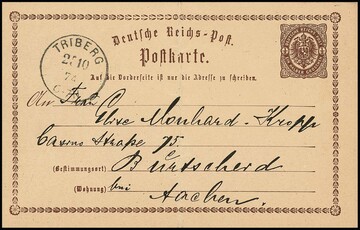 Deutsche Reichs-Post.
Postkarte.
Auf die Vorderseite ist nur die Adresse zu schreiben.
TRIBERG
27 10
74
An Frau
Monhard-Kropp
Straße 75.
Burtscheid
(Bestimmungsort)
(Wohnung) bei
Aachen.